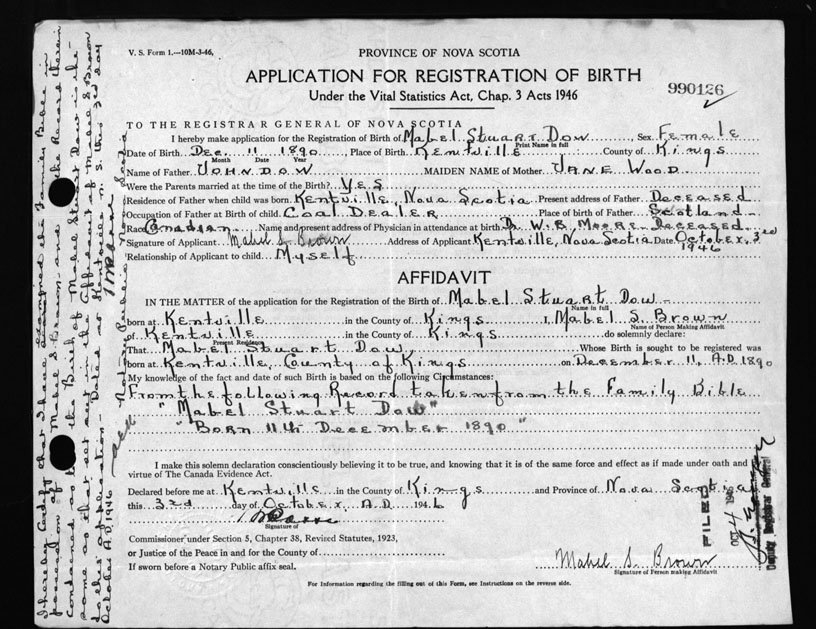 V. S. Form 1.—10M-3-46,
PROVINCE OF NOVA SCOTIA
APPLICATION FOR REGISTRATION OF BIRTH
Under the Vital Statistics Act, Chap. 3 Acts 1946
990126
TO THE REGISTRAR GENERAL OF NOVA SCOTIA
I hereby make application for the Registration of Birth of Mabel Stuart Dow Sex Female
Print Name in full
Date of Birth Dec. 11 1890 Place of Birth Kentville County of Kings
Month Date Year
Name of Father JOHN DOW MAIDEN NAME of Mother JANE WOOD
Were the Parents married at the time of the Birth? Yes
Residence of Father when child was born Kentville, Nova Scotia Present address of Father Deceased
Occupation of Father at Birth of child Coal Dealer Place of birth of Father Scotland
Race Canadian Name and present address of Physician in attendance at birth Dr. W. B. Moore Deceased
Signature of Applicant Mabel S. Brown Address of Applicant Kentville, Nova Scotia Date October 3rd 1946
Relationship of Applicant to child Myself
AFFIDAVIT
IN THE MATTER of the application for the Registration of the Birth of Mabel Stuart Dow
Name in full
born at Kentville in the County of Kings I, Mabel S. Brown
Name of Person Making Affidavit
of Kentville in the County of Kings do solemnly declare:
Present Residence
That Mabel Stuart Dow Whose Birth is sought to be registered was
born at Kentville, County of Kings on December 11, A.D. 1890
My knowledge of the fact and date of such Birth is based on the following Circumstances:
From the following Record taken from the Family Bible
"Mabel Stuart Dow"
"Born 11th December 1890"
I make this solemn declaration conscientiously believing it to be true, and knowing that it is of the same force and effect as if made under oath and
virtue of The Canada Evidence Act.
Declared before me at Kentville in the County of Kings and Province of Nova Scotia
this 3rd day of October, A.D. 1946
Signature of
Commissioner under Section 5, Chapter 38, Revised Statutes, 1923,
or Justice of the Peace in and for the County of
If sworn before a Notary Public affix seal.
Mabel S. Brown
Signature of Person making Affidavit
For Information regarding the filling out of this Form, see Instructions on the reverse side.
FILED
OCT 4 1946
Deputy Registrar General
I hereby Certify that I have examined the Family Bible in
possession of Mabel S. Brown and the Record therein
contained as to the Birth of Mabel Stuart Dow is the
same as that set out in the Affidavit of Mabel S. Brown
to this application. Dated at Kentville N.S. this 3rd day
October A.D. 1946
Notary Public Nova Scotia